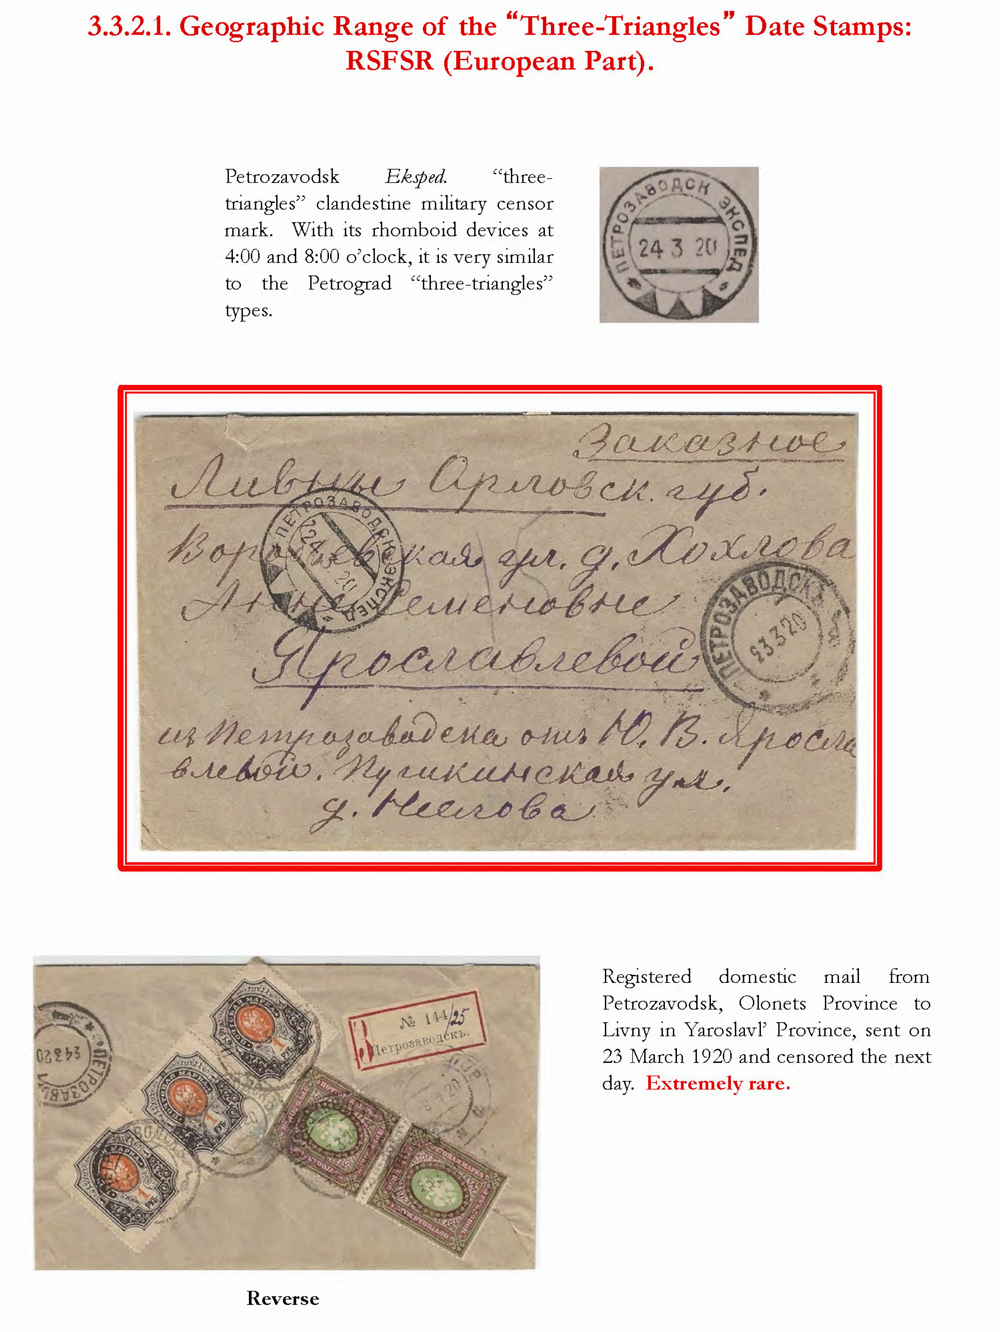 3.3.2.1. Geographic Range of the “Three-Triangles” Date Stamps:
RSFSR (European Part).
Petrozavodsk Eksped. “three-
triangles” clandestine military censor
mark. With its rhomboid devices at
4:00 and 8:00 o’clock, it is very similar
to the Petrograd “three-triangles”
types.
ПЕТРОЗАВОДСК ЭКСПЕД.
24 3 20
Заказное
Ливны Орловск. губ.
ул. д. Хохлова
Ярославлевой
ПЕТРОЗАВОДСК ЭКСПЕД
24 20
ПЕТРОЗАВОДСКЪ
23 3 20
из Петрозаводска отъ Ю. В. Яросла
влевой. Пушкинская ул.
д.
Registered domestic mail from
Petrozavodsk, Olonets Province to
Livny in Yaroslavl’ Province, sent on
23 March 1920 and censored the next
day. Extremely rare.
№ 144/25
З Петрозаводскъ.
1
1
1
Reverse